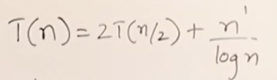 T(n) = 2T(n/2) + n' / log n